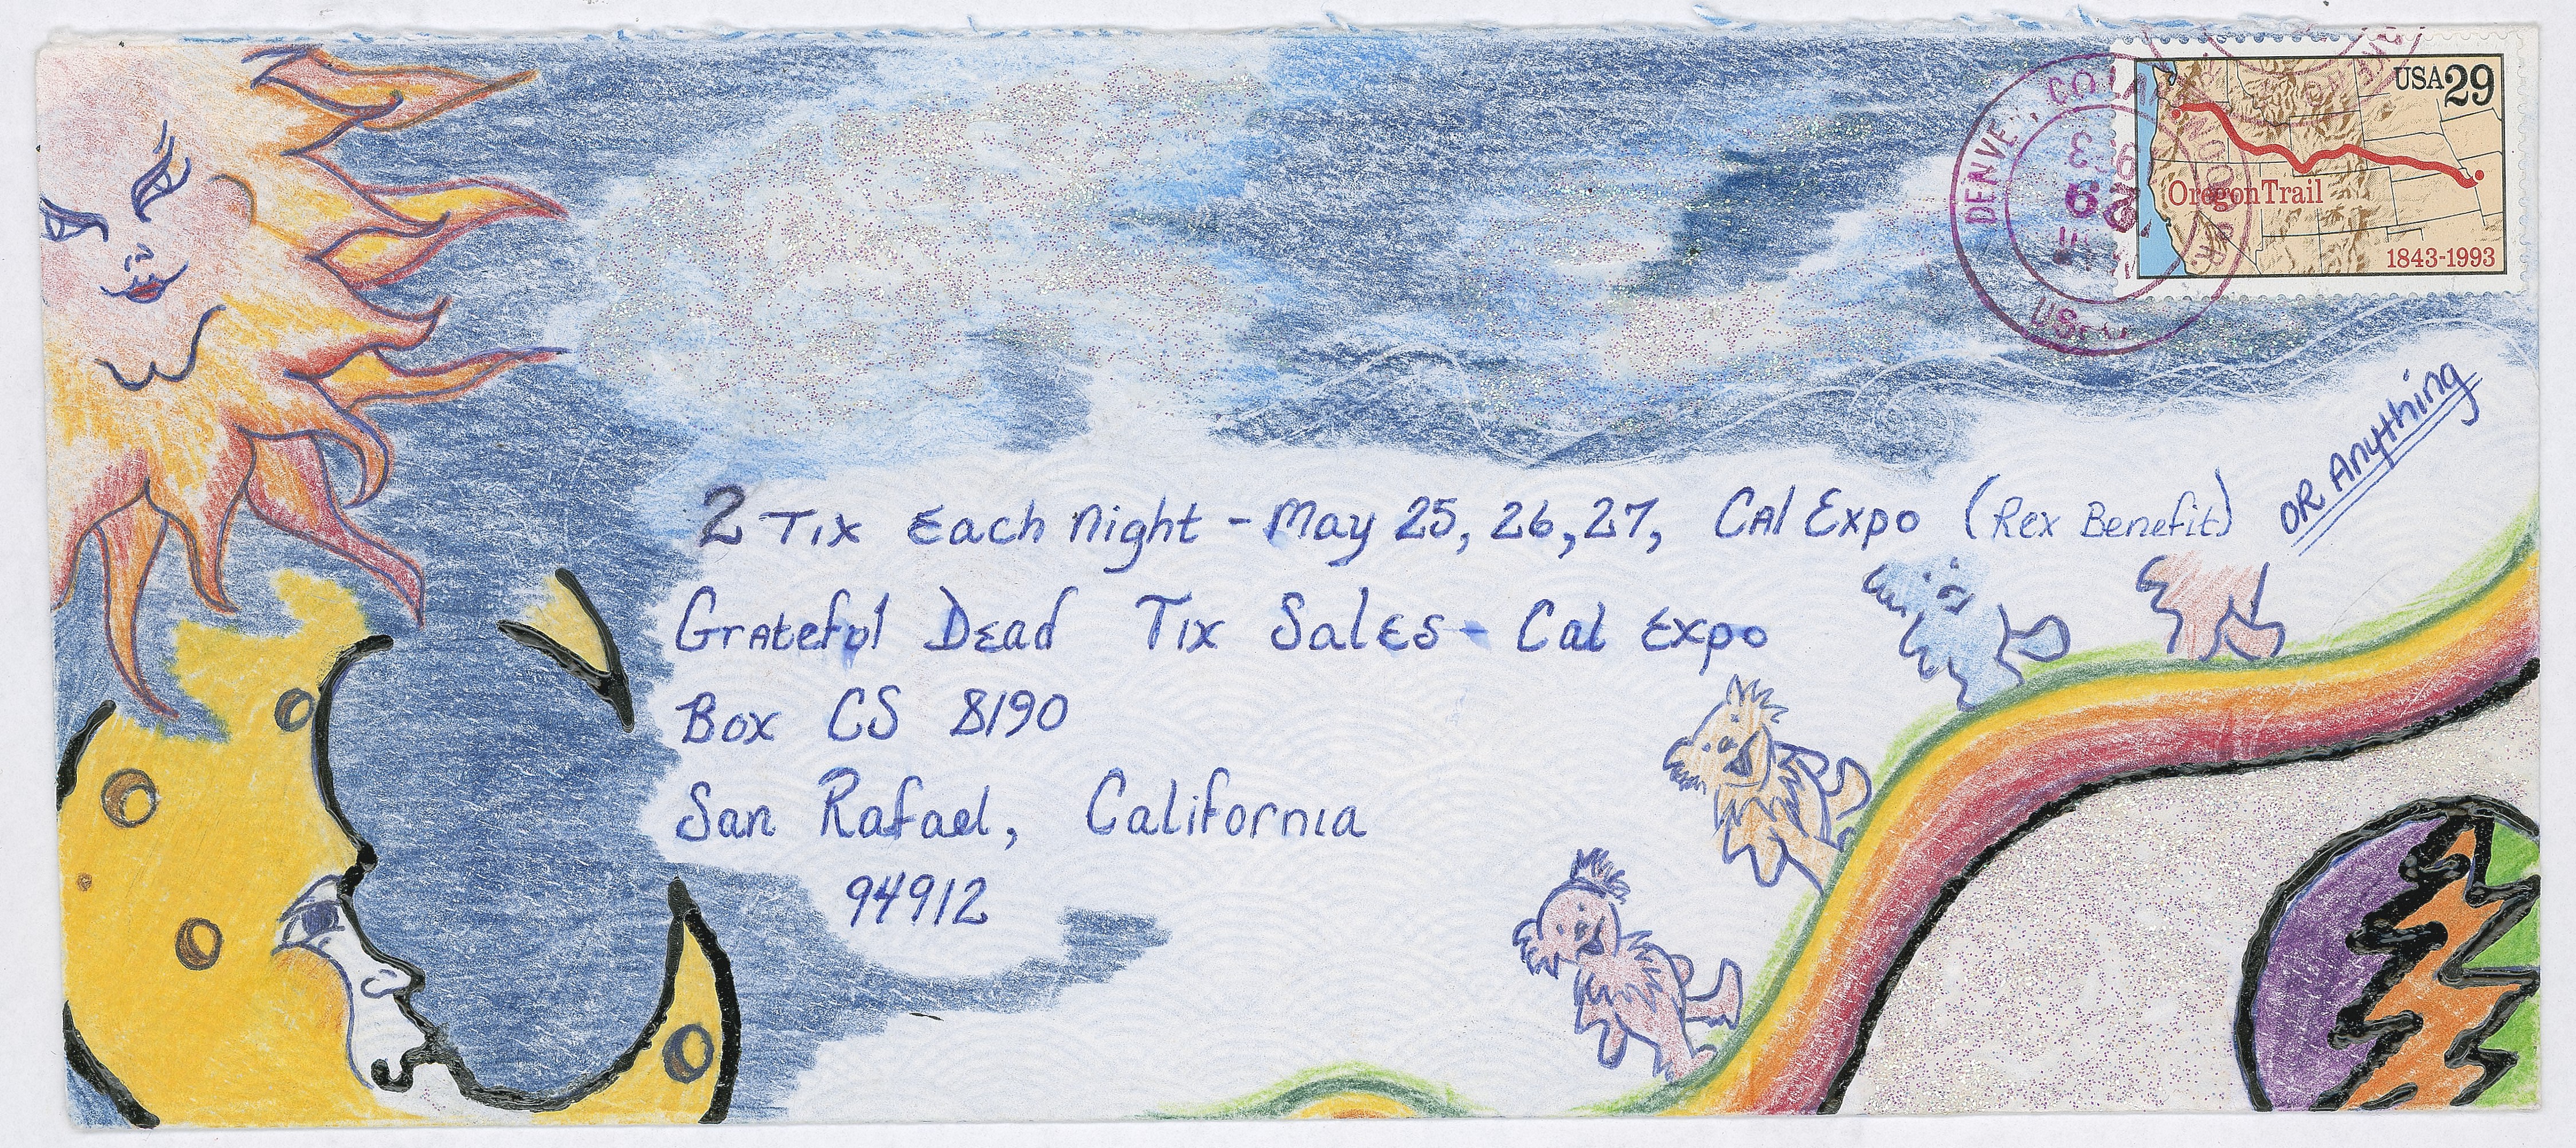 USA 29
Oregon Trail
1843-1993
DENVE
US
OR Anything
2 Tix Each Night - May 25, 26, 27, Cal Expo (Rex Benefit)
Grateful Dead Tix Sales - Cal Expo
Box CS 8190
San Rafael, California
94912